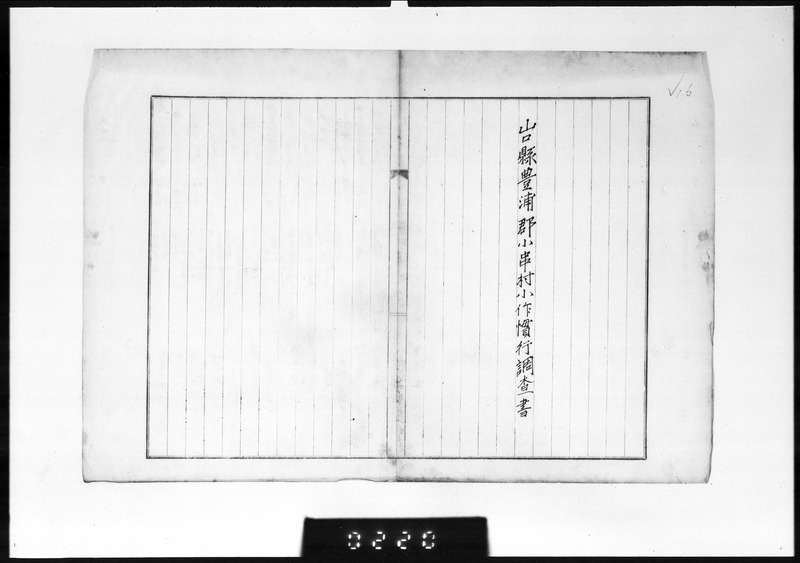 山口縣豊浦郡小串村小作慣行調査書
0220